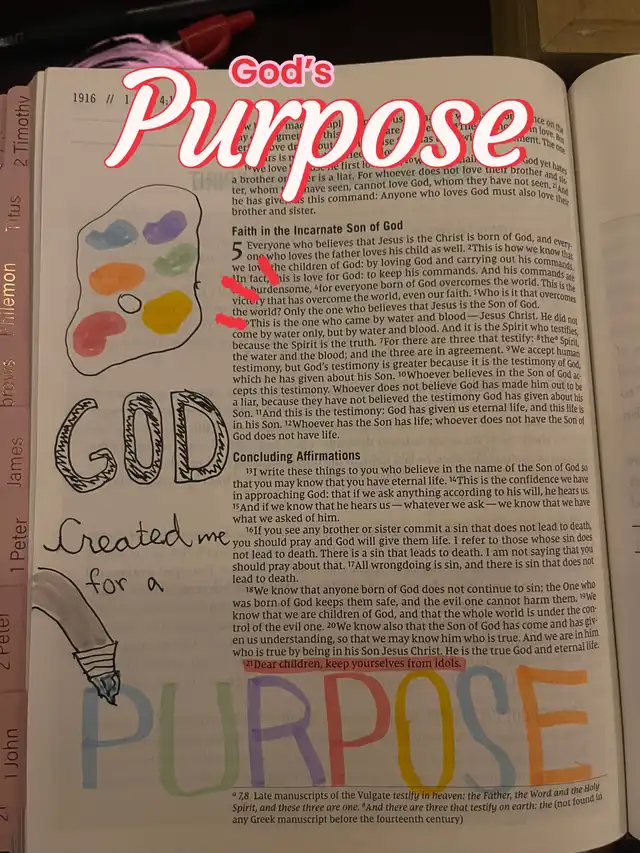 God's
Purpose
1916 // 1
2 Timothy
Titus
Philemon
James
1 Peter
2 Peter
1 John
a brother or
is a liar. For whoever does not love their brother and sis-
ter, whom
have seen, cannot love God, whom they have not seen. 21And
he has given us this command: Anyone who loves God must also love their
brother and sister.
Faith in the Incarnate Son of God
5 Everyone who believes that Jesus is the Christ is born of God, and every-
one who loves the father loves his child as well. 2This is how we know that
we love the children of God: by loving God and carrying out his commands.
3In fact, this is love for God: to keep his commands. And his commands are
not burdensome, 4for everyone born of God overcomes the world. This is the
victory that has overcome the world, even our faith. 5Who is it that overcomes
the world? Only the one who believes that Jesus is the Son of God.
6This is the one who came by water and blood—Jesus Christ. He did not
come by water only, but by water and blood. And it is the Spirit who testifies,
because the Spirit is the truth. 7For there are three that testify: 8the a Spirit,
the water and the blood; and the three are in agreement. 9We accept human
testimony, but God's testimony is greater because it is the testimony of God,
which he has given about his Son. 10Whoever believes in the Son of God ac-
cepts this testimony. Whoever does not believe God has made him out to be
a liar, because they have not believed the testimony God has given about his
Son. 11And this is the testimony: God has given us eternal life, and this life is
in his Son. 12Whoever has the Son has life; whoever does not have the Son of
God does not have life.
Concluding Affirmations
13I write these things to you who believe in the name of the Son of God so
that you may know that you have eternal life. 14This is the confidence we have
in approaching God: that if we ask anything according to his will, he hears us.
15And if we know that he hears us—whatever we ask—we know that we have
what we asked of him.
16If you see any brother or sister commit a sin that does not lead to death,
you should pray and God will give them life. I refer to those whose sin does
not lead to death. There is a sin that leads to death. I am not saying that you
should pray about that. 17All wrongdoing is sin, and there is sin that does not
lead to death.
18We know that anyone born of God does not continue to sin; the One who
was born of God keeps them safe, and the evil one cannot harm them. 19We
know that we are children of God, and that the whole world is under the con-
trol of the evil one. 20We know also that the Son of God has come and has giv-
en us understanding, so that we may know him who is true. And we are in him
who is true by being in his Son Jesus Christ. He is the true God and eternal life.
21Dear children, keep yourselves from idols.
GOD
Created me
for a
PURPOSE
a 7,8 Late manuscripts of the Vulgate testify in heaven: the Father, the Word and the Holy
Spirit, and these three are one. 8And there are three that testify on earth: the (not found in
any Greek manuscript before the fourteenth century)